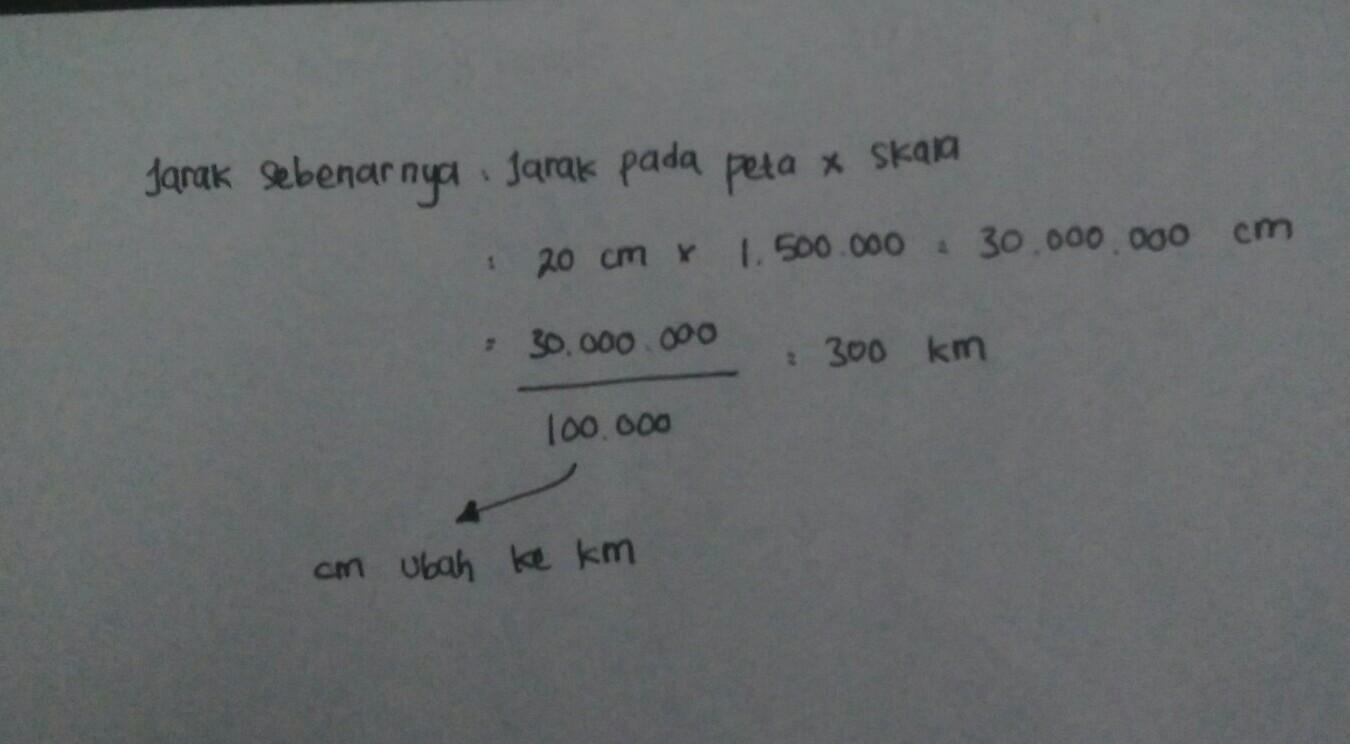 Jarak sebenarnya = Jarak pada peta x skala
= 20 cm x 1.500.000 = 30.000.000 cm
= 30.000.000 = 300 km
100.000
cm ubah ke km